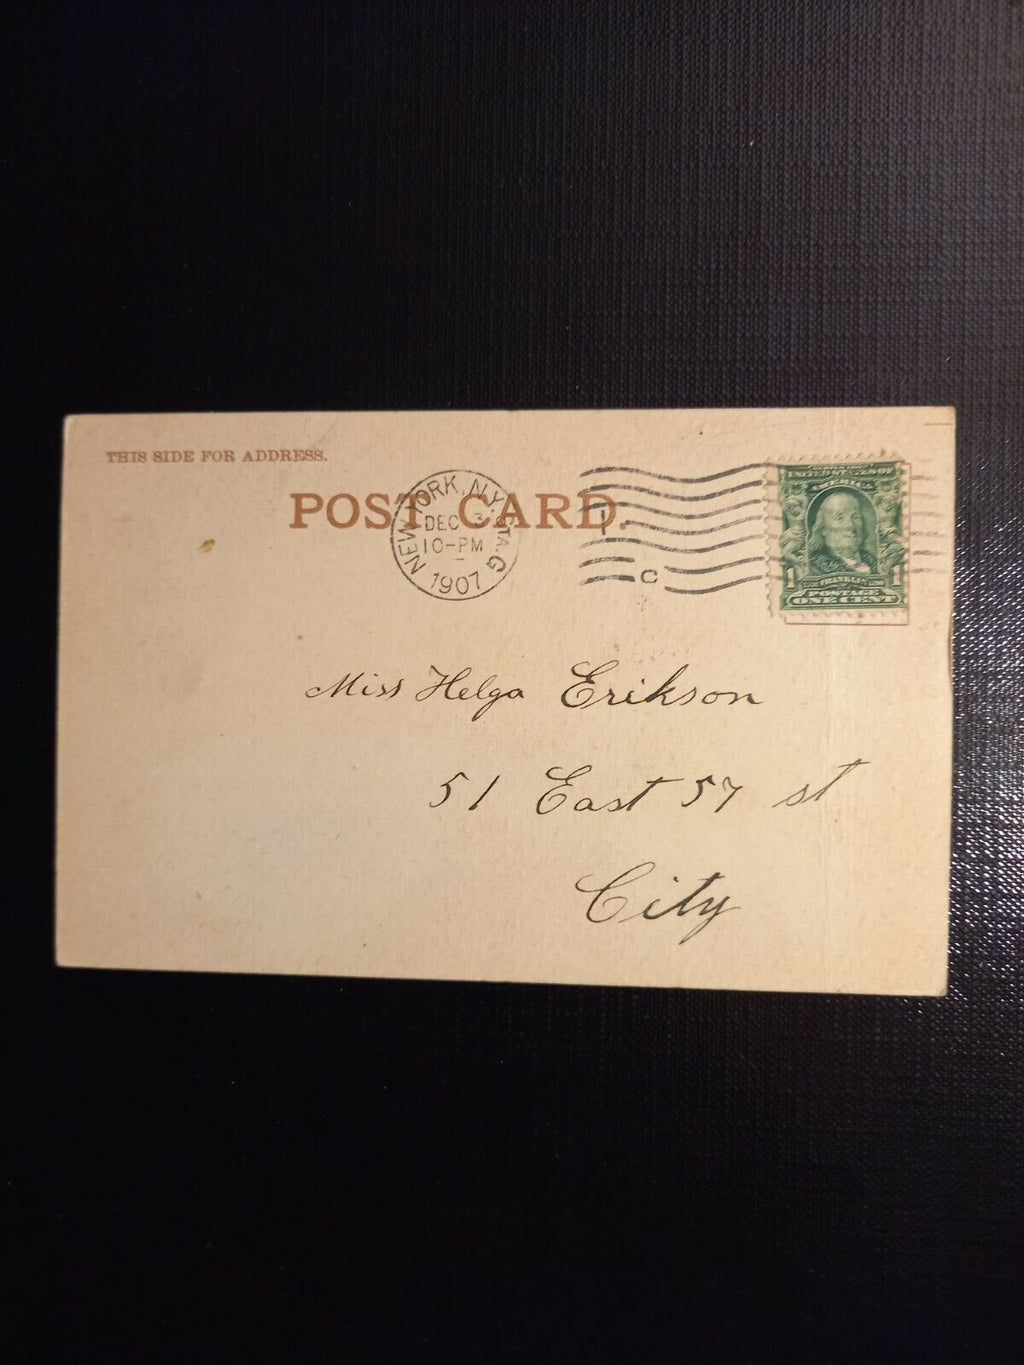 THIS SIDE FOR ADDRESS.
POST CARD.
NEW YORK, N.Y. STA. G
DEC 3
10-PM
1907
C
SERIES 1902
UNITED STATES OF
AMERICA
1 FRANKLIN 1
POSTAGE
ONE CENT
Miss Helga Erikson
51 East 57 st
City